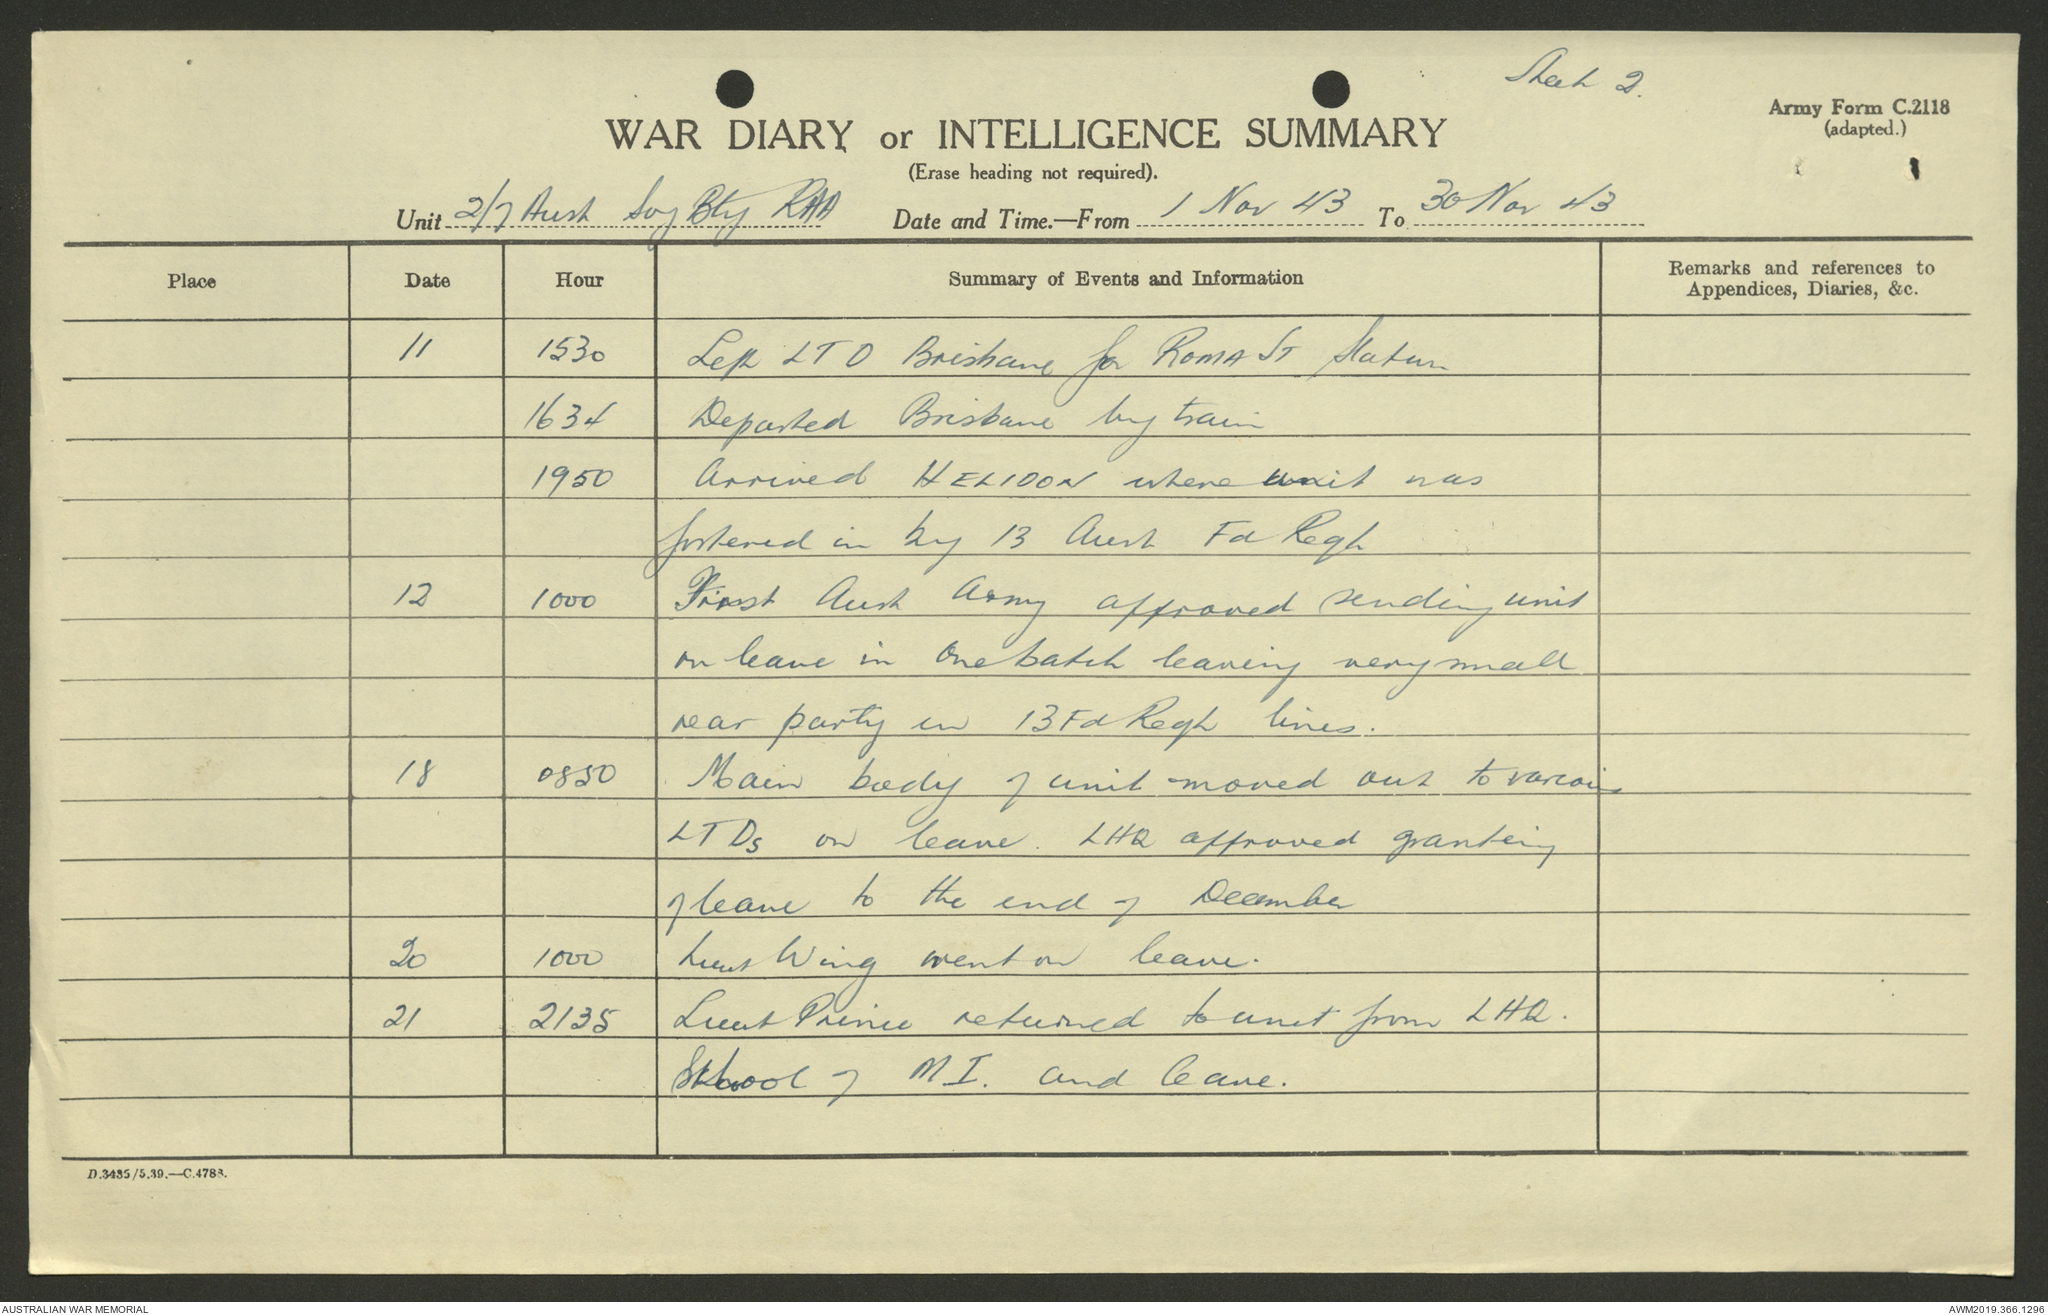 Sheet 2.
Army Form C.2118
(adapted.)
WAR DIARY or INTELLIGENCE SUMMARY
(Erase heading not required).
Unit 2/7 Aust Svy Bty RAA Date and Time.—From 1 Nov 43 To 30 Nov 43
Place Date Hour Summary of Events and Information Remarks and references to Appendices, Diaries, &c.
11 1530 Left LTD Brisbane for ROMA ST Station
1634 Departed Brisbane by train
1950 Arrived HELIDON where unit was
fostered in by 13 Aust Fd Regt
12 1000 First Aust Army approved sending unit
on leave in one batch leaving very small
rear party in 13 Fd Regt lines.
18 0850 Main body of unit moved out to various
LTDs on leave. LHQ approved granting
of leave to the end of December
20 1000 Lieut Wing went on leave.
21 2135 Lieut Prince returned to unit from LHQ.
School of M I. and leave.
D.3435/5.39.—C.4788.
AUSTRALIAN WAR MEMORIAL
AWM2019.366.1296